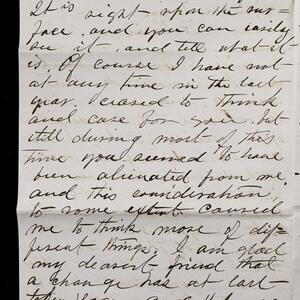 It is right upon the sur-
face, and you can easily
see it, and tell what it
is. Of course I have not
at any time in the last
year, ceased to think
and care for you, but
still during most of this
time you seemed to have
been alienated from me.
and this consideration,
to some extent caused
me to think more of dif-
ferent things. I am glad
my dearest friend that
a change has at last